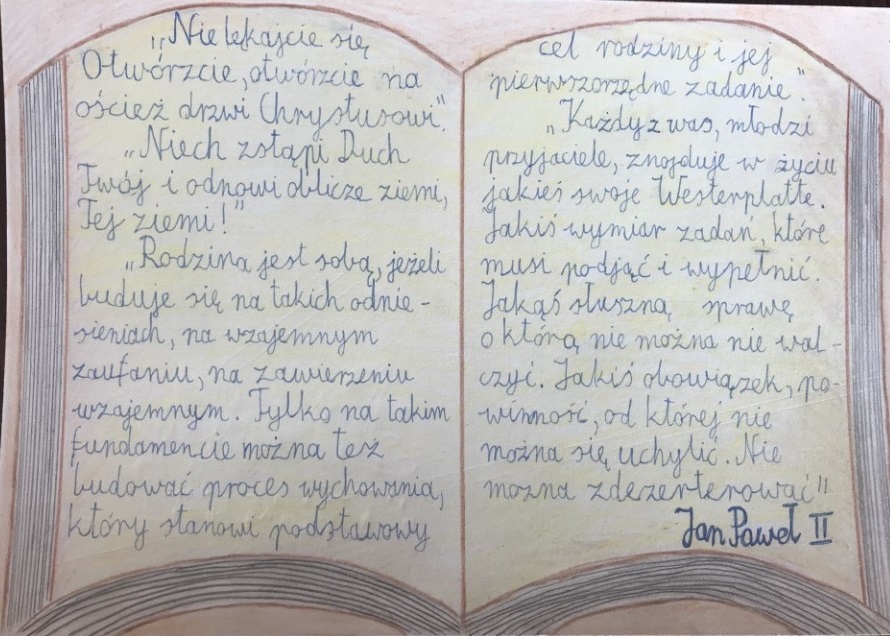 „Nie lękajcie się,
Otwórzcie, otwórzcie na
oścież drzwi Chrystusowi".
„Niech zstąpi Duch
Twój i odnowi oblicze ziemi,
Tej ziemi!"
„Rodzina jest sobą, jeżeli
buduje się na takich odnie-
sieniach, na wzajemnym
zaufaniu, na zawierzeniu
wzajemnym. Tylko na takim
fundamencie można też
budować proces wychowania,
który stanowi podstawowy
cel rodziny i jej
pierwszorzędne zadanie".
„Każdy z was, młodzi
przyjaciele, znajduje w życiu
jakieś swoje Westerplatte.
Jakiś wymiar zadań, które
musi podjąć i wypełnić.
Jakąś słuszną sprawę
o którą nie można nie wal-
czyć. Jakiś obowiązek, po-
winność, od której nie
można się uchylić. Nie
można zdezerterować"
Jan Paweł II